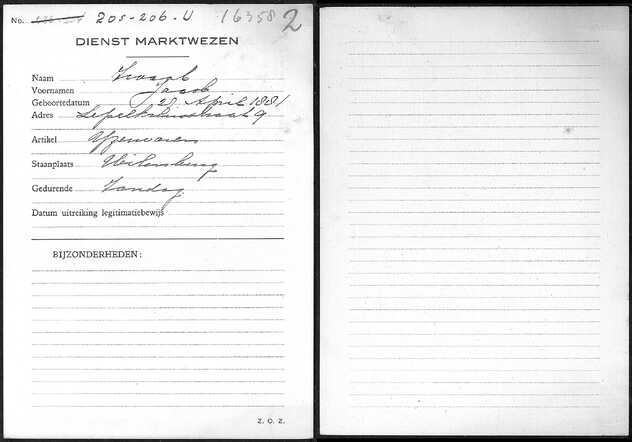 No. 205-206-U 16358 2
DIENST MARKTWEZEN
Naam
Voornamen Jacob
Geboortedatum 28 April 1881
Adres Lepelkruisstraat 9
Artikel Yzerwaren
Staanplaats Uilenburg
Gedurende Zondag
Datum uitreiking legitimatiebewijs
BIJZONDERHEDEN:
Z. O. Z.